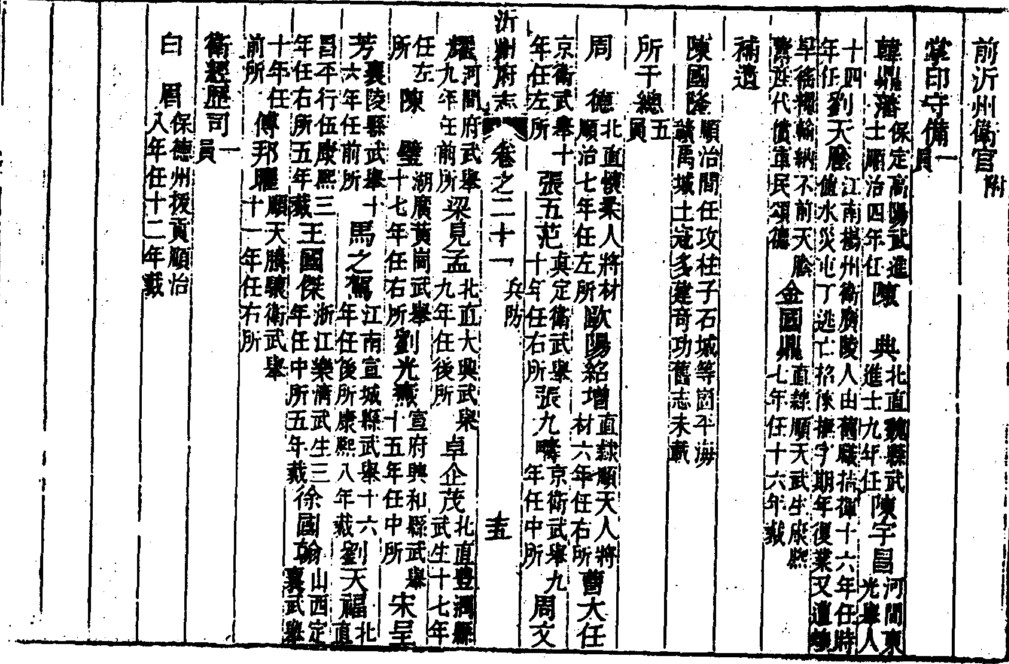 前沂州衛官附
掌印守備一員
韓鼎藩保定高陽武進士順治四年任陳典北直魏縣武進士九年任陳宇昌河間東光舉人
十四年任劉天廕江南揚州衛廣陵人由舊職指揮十六年任時值水災屯丁逃亡格徠撫字期年復業又遭
早徭糧輸納不前天廕代償軍民頌德金國鼎直隸順天武生康熙七年任十六年裁
補遺
陳國隆順治間任攻柱子石城等崮平海贛禹城土寇多建奇功舊志未載
所千總五員
周德北直懷柔人將材順治七年任左所歐陽紹增直隸順天人將材六年任右所曹大任
京衛武舉十年任左所張五范真定衛武舉十年任右所張九疇京衛武舉九年任中所周文
沂州府志 卷之二十一 兵防 十五
耀河間府武舉九年任前所梁見孟北直大興武舉九年任後所卓企茂北直豊潤縣武生十七年
任左所陳璧湖廣黃崗武舉十七年任右所劉光燾宣府興和縣武舉十五年任中所宋呈
芳襄陵縣武舉十六年任前所馬之駕江南宣城縣武舉十六年任後所康熙八年裁劉天福北直
昌平行伍康熙三年任右所五年裁王國傑浙江樂清武生三年任中所五年裁徐國翰山西定襄武舉
十年任前所傅邦曜順天騰驤衛武舉十一年任右所
衛經歷司一員
白眉保德州拔貢順治八年任十二年裁